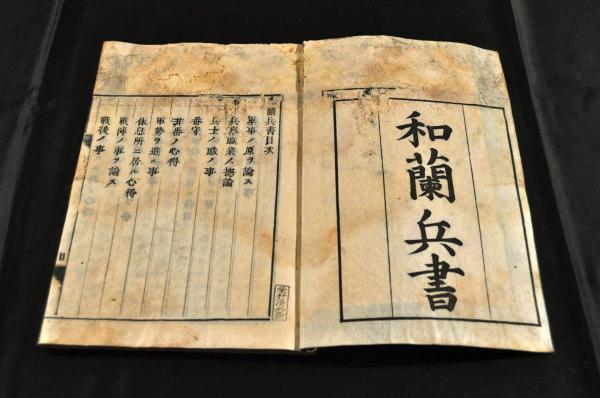 和蘭兵書
蘭兵書目次
軍事ノ原ヲ論ス
兵卒職業ノ揔論
兵士ノ職ノ事
番守
非番ノ心得
軍勢ヲ進ル事
休息所ニ居ル心得
戦陣ノ事ヲ論ス
戦後ノ事
目